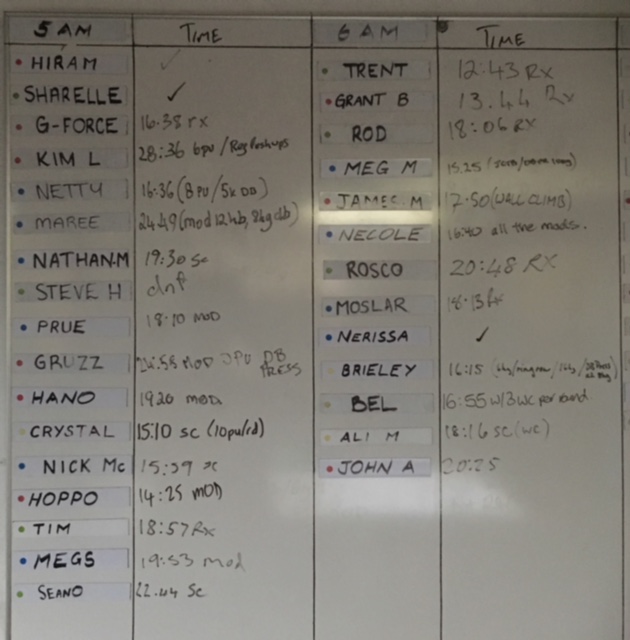 5 AM TIME
HIRAM ✓
SHARELLE ✓
G-FORCE 16.38 rx
KIM L 28:36 6pu / Reg Pushups
NETTY 16:36 (8PU/5k DB)
MAREE 24.49 (mod 12kb, 8kg db)
NATHAN.M 19:30 sc
STEVE H dnf
PRUE 18:10 MOD
GRUZZ MOD DB PRESS
HANO 1920 mod
CRYSTAL 15:10 SC (10pu/rd)
NICK Mc 15:59 sc
HOPPO 14:25 MOD
TIM 18:57 Rx
MEGS 19:53 mod
SEANO 22.44 Sc
6 AM TIME
TRENT 12:43 Rx
GRANT B 13.44 Rx
ROD 18:06 RX
MEG M 15.25
JAMES.M 17.50 (WALL CLIMB)
NECOLE 16:40 all the mods.
ROSCO 20:48 RX
MOSLAR 18.13 Rx
NERISSA ✓
BRIELEY 16:15
BEL 16:55 w/3wc per round
ALI M 18:16 SC (WC)
JOHN A 20:25